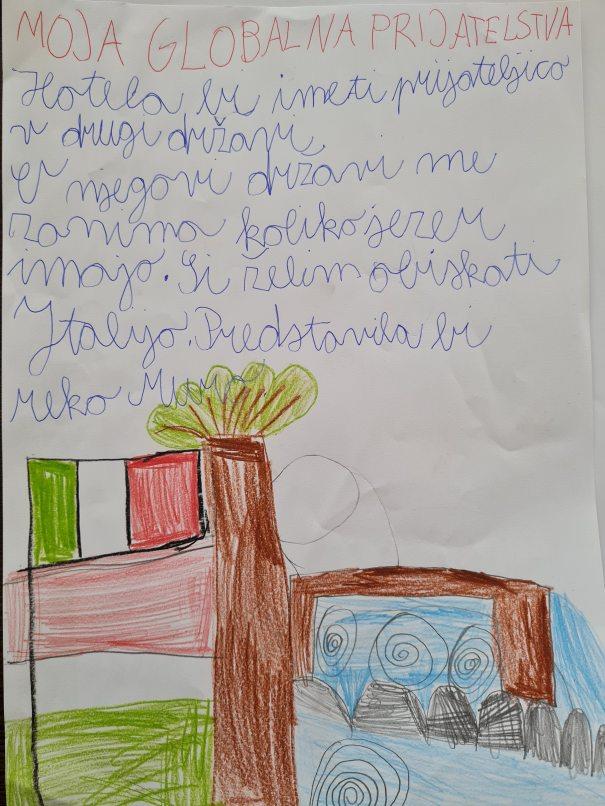 MOJA GLOBALNA PRIJATELSTVA
Hotela bi imeti prijateljico
v drugi državi.
V njegovi državi me
zanima koliko jezer
imajo. Si želim obiskati
Italijo. Predstavila bi
reko Muro